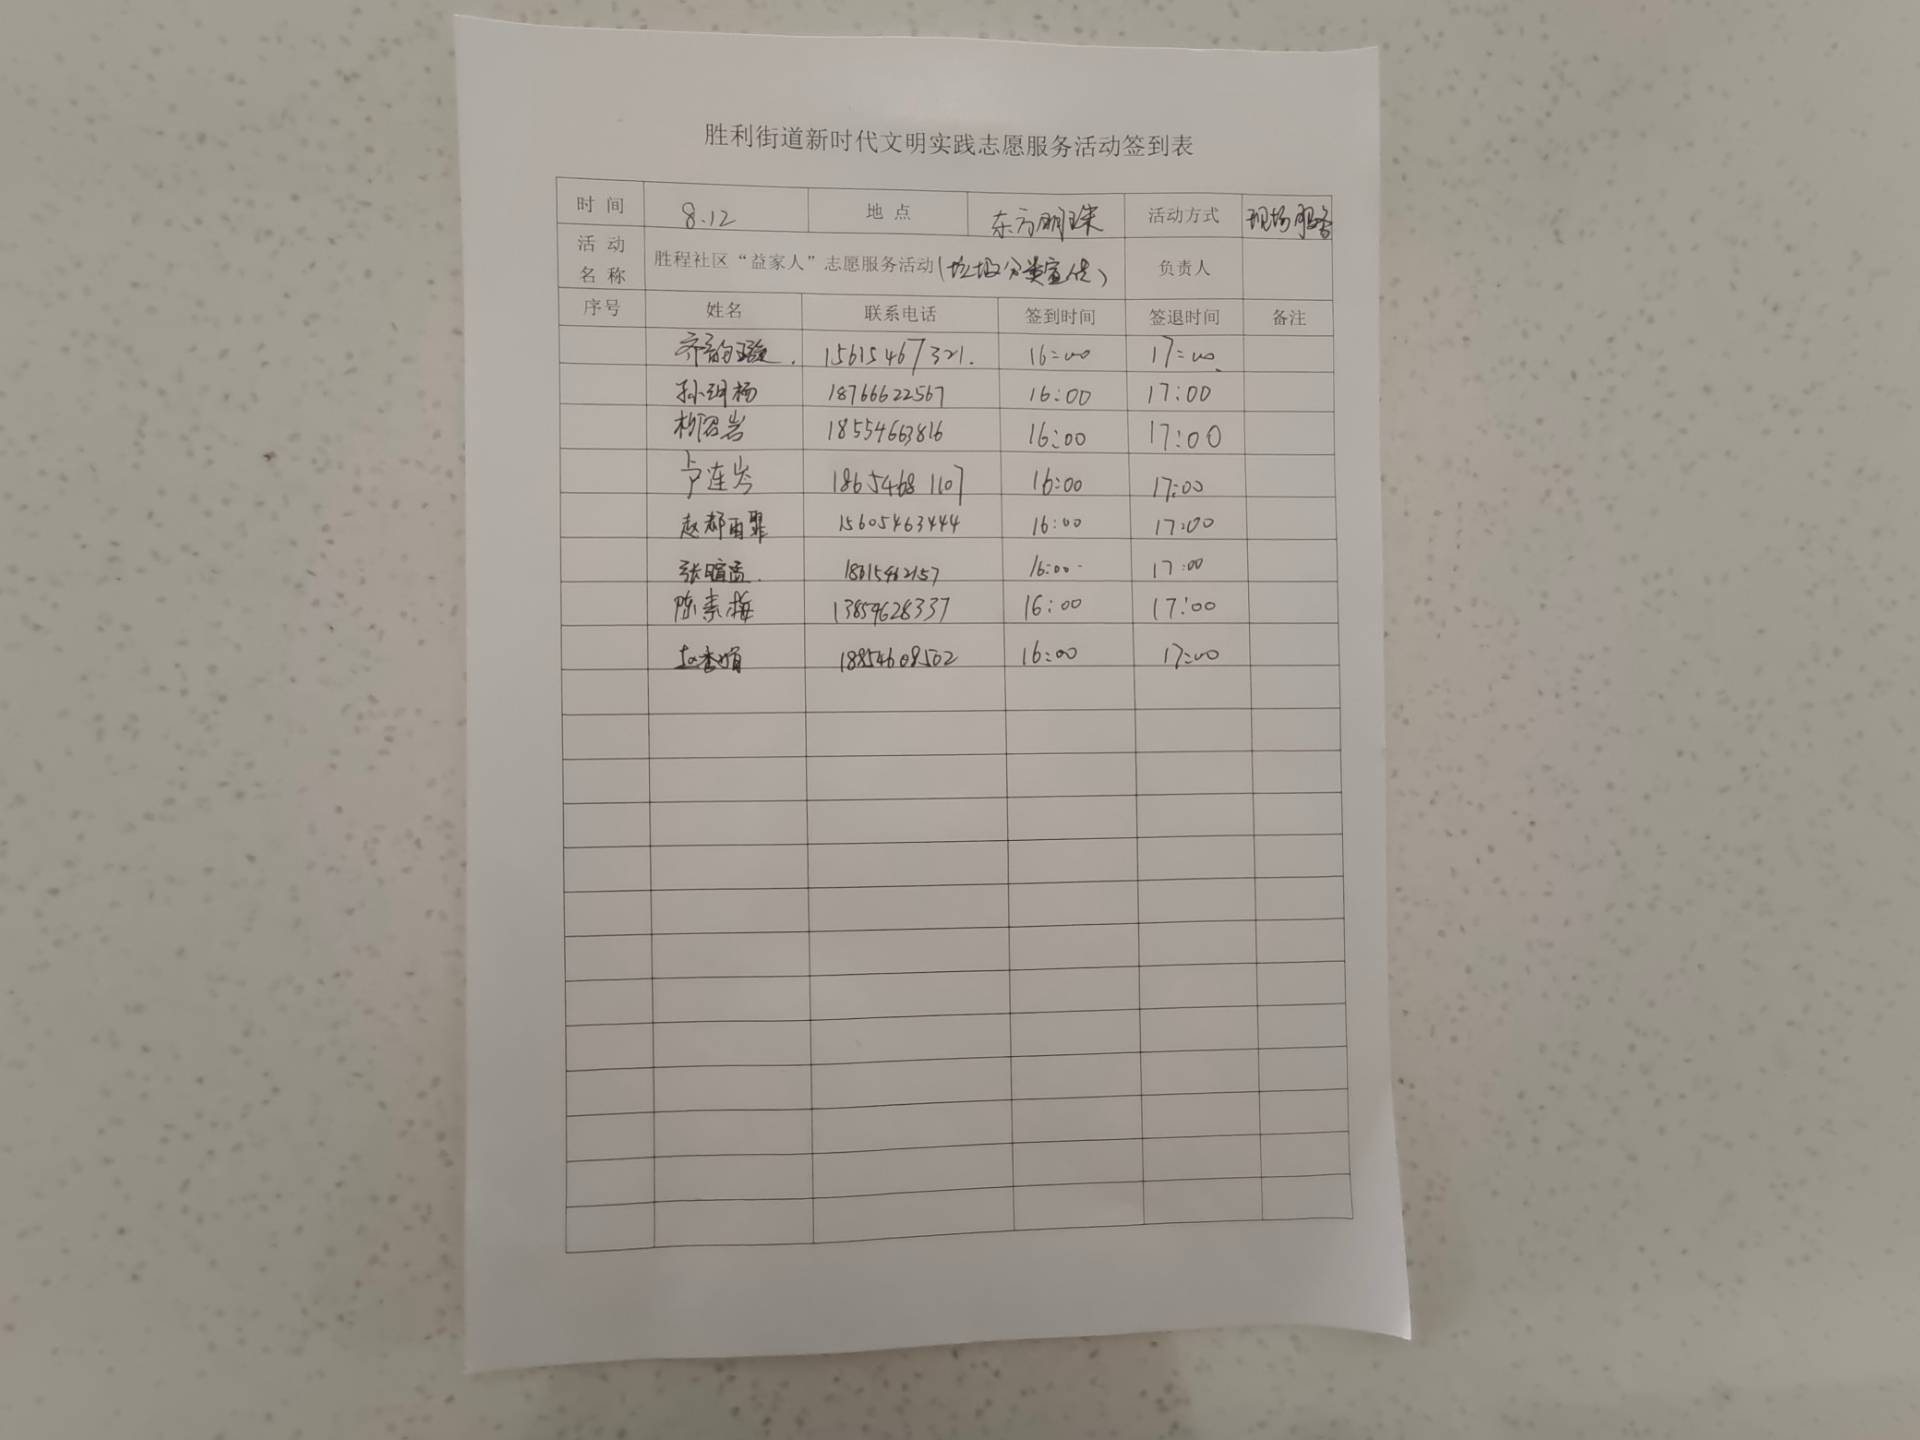 胜利街道新时代文明实践志愿服务活动签到表
时 间 8.12 地 点 东方明珠 活动方式 现场服务
活 动
名 称 胜程社区“益家人”志愿服务活动(垃圾分类宣传) 负责人
序号 姓名 联系电话 签到时间 签退时间 备注
齐韵璇. 15615467321. 16:00 17:00.
孙翊杨 18766622567 16:00 17:00
柳岩 18554663816 16:00 17:00
卢连岑 18654681107 16:00 17:00
赵郝雨霏 15605463444 16:00 17:00
张暄 18615462157 16:00 17:00
陈素梅 13854628337 16:00 17:00
赵香娟 18854608502 16:00 17:00